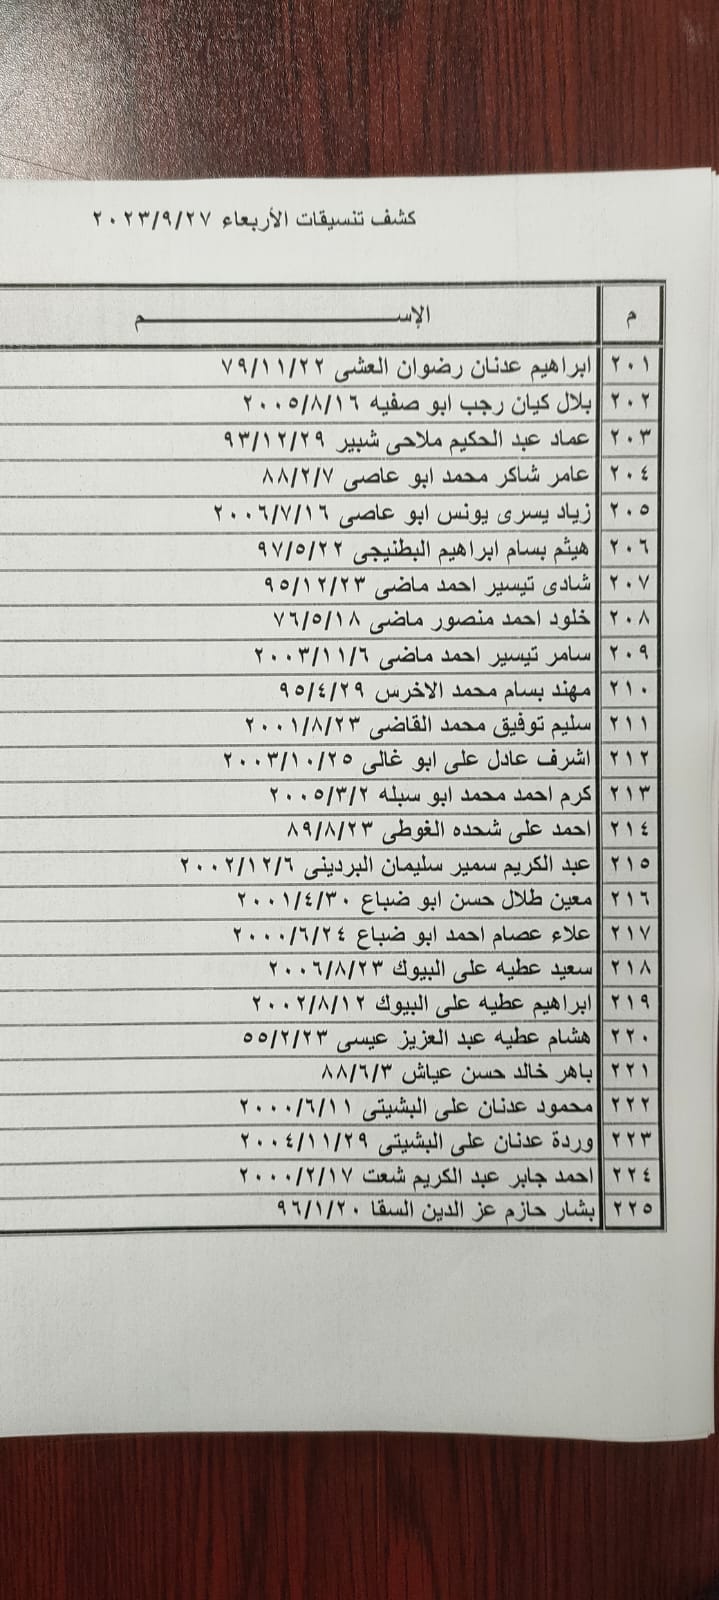 كشف تنسيقات الأربعاء ٢٠٢٣/٩/٢٧
م الإســـــــــــــــم
٢٠١ ابراهيم عدنان رضوان العشى ٧٩/١١/٢٢
٢٠٢ بلال كيان رجب ابو صفيه ٢٠٠٥/٨/١٦
٢٠٣ عماد عبد الحكيم ملاحى شبير ٩٣/١٢/٢٩
٢٠٤ عامر شاكر محمد ابو عاصى ٨٨/٢/٧
٢٠٥ زياد يسرى يونس ابو عاصى ٢٠٠٦/٧/١٦
٢٠٦ هيثم بسام ابراهيم البطنيجى ٩٧/٥/٢٢
٢٠٧ شادى تيسير احمد ماضى ٩٥/١٢/٢٣
٢٠٨ خلود احمد منصور ماضى ٧٦/٥/١٨
٢٠٩ سامر تيسير احمد ماضى ٢٠٠٣/١١/٦
٢١٠ مهند بسام محمد الاخرس ٩٥/٤/٢٩
٢١١ سليم توفيق محمد القاضى ٢٠٠١/٨/٢٣
٢١٢ اشرف عادل على ابو غالى ٢٠٠٣/١٠/٢٥
٢١٣ كرم احمد محمد ابو سبله ٢٠٠٥/٣/٢
٢١٤ احمد على شحده الغوطى ٨٩/٨/٢٣
٢١٥ عبد الكريم سمير سليمان البردينى ٢٠٠٢/١٢/٦
٢١٦ معين طلال حسن ابو ضباع ٢٠٠١/٤/٣٠
٢١٧ علاء عصام احمد ابو ضباع ٢٠٠٠/٦/٢٤
٢١٨ سعيد عطيه على البيوك ٢٠٠٦/٨/٢٣
٢١٩ ابراهيم عطيه على البيوك ٢٠٠٢/٨/١٢
٢٢٠ هشام عطيه عبد العزيز عيسى ٥٥/٢/٢٣
٢٢١ باهر خالد حسن عياش ٨٨/٦/٣
٢٢٢ محمود عدنان على البشيتى ٢٠٠٠/٦/١١
٢٢٣ وردة عدنان على البشيتى ٢٠٠٤/١١/٢٩
٢٢٤ احمد جابر عبد الكريم شعت ٢٠٠٠/٢/١٧
٢٢٥ بشار حازم عز الدين السقا ٩٦/١/٢٠